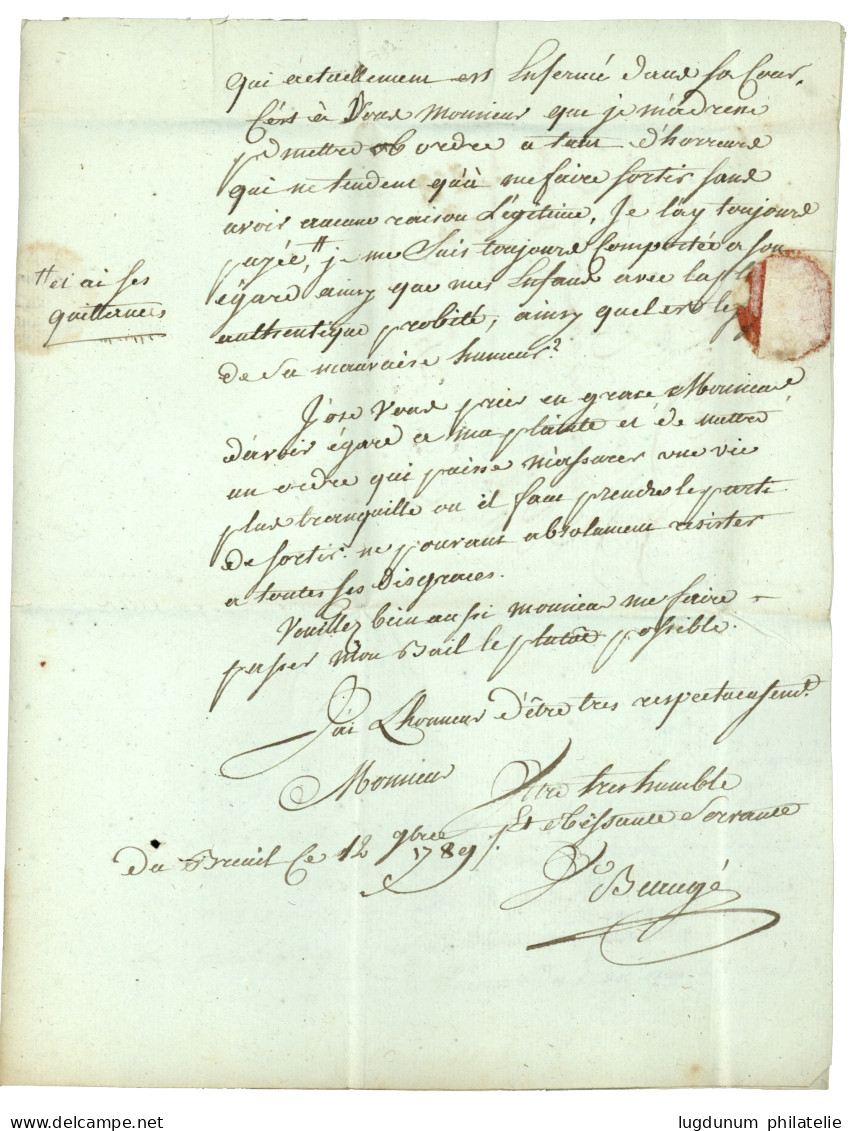 qui actuellement est Enfermé dans sa Cour,
C'est à Vous Monsieur que je m'adresse
pr mettre ordre a tant d'horreurs
qui ne tendent qu'à me faire sortir sans
avoir aucune raison Légitime, Je l'ay toujours
payée," je me suis toujours Comportée a son
"et ai ses
quittances
égard ainsy que mes Enfans avec la pl
authentique probité, ainsy quel est le
de sa mauvaise humeur?
J'ose Vous prier en grace Monsieur
d'avoir égard a ma plainte et de mettre
un ordre qui puisse m'assurer une vie
plus tranquille ou il faut prendre le parti
de sortir ne pouvant absolument resister
a toutes ses disgraces.
Veuillez bien aussi monsieur me faire
passer mon Bail le plutot possible.
J'ai L'honneur d'être tres respectueusemt.
Monsieur
Vtre tres humble
Et obéissante Servante
du Breuil Ce 12 9bre 1789
Ve Beaugé
lugdunum philatelie